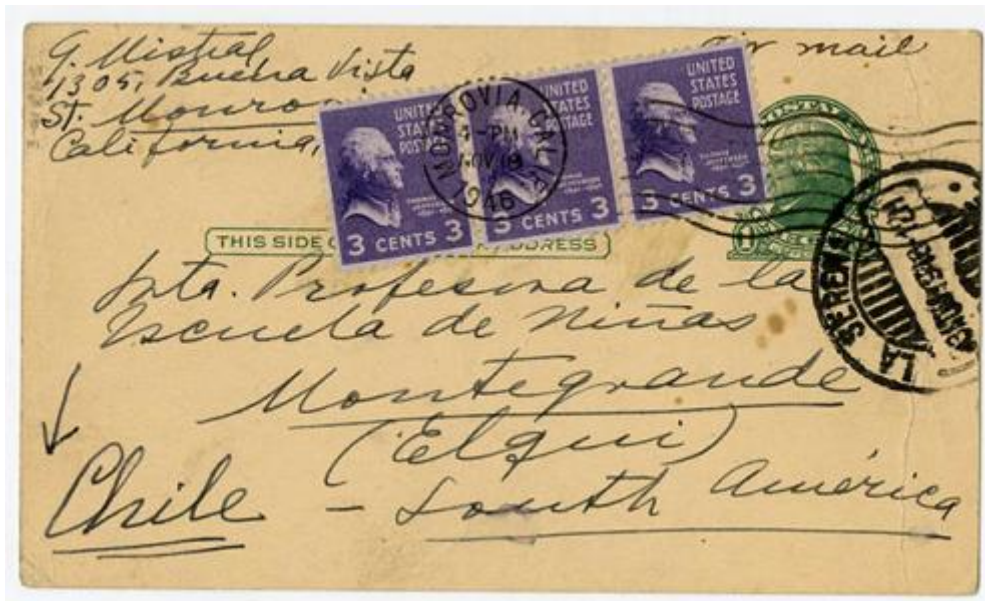 G. Mistral
1305, Buena Vista
St. Monro
California,
Air mail
UNITED
STATES
POSTAGE
3 CENTS 3
UNITED
STATES
POSTAGE
3 CENTS 3
UNITED
STATES
POSTAGE
THOMAS
JEFFERSON
3 CENTS 3
MONROVIA, CALIF.
4-PM
NOV
1946
THIS SIDE ADDRESS
LA SERENA
Srta. Profesora de la
Escuela de Niñas
Montegrande
(Elqui)
Chile - South América